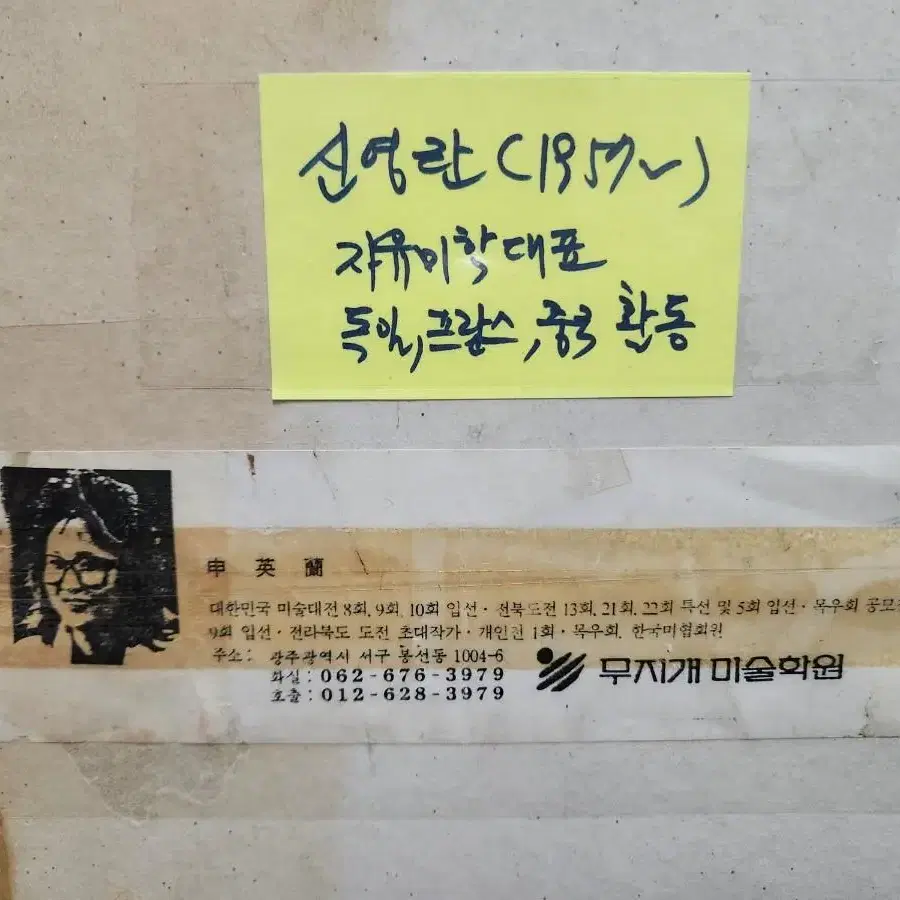 신영란(1957~)
자유미학대표
독일, 프랑스, 중국 환동
申英蘭
대한민국 미술대전 8회, 9회, 10회 입선 · 전북도전 13회, 21회, 22회 특선 및 5회 입선 · 목우회 공모전
9회 입선 · 전라북도 도전 초대작가 · 개인전 1회 · 목우회, 한국미협회원
주소: 광주광역시 서구 봉선동 1004-6
화실: 062-676-3979
호출: 012-628-3979
무지개 미술학원